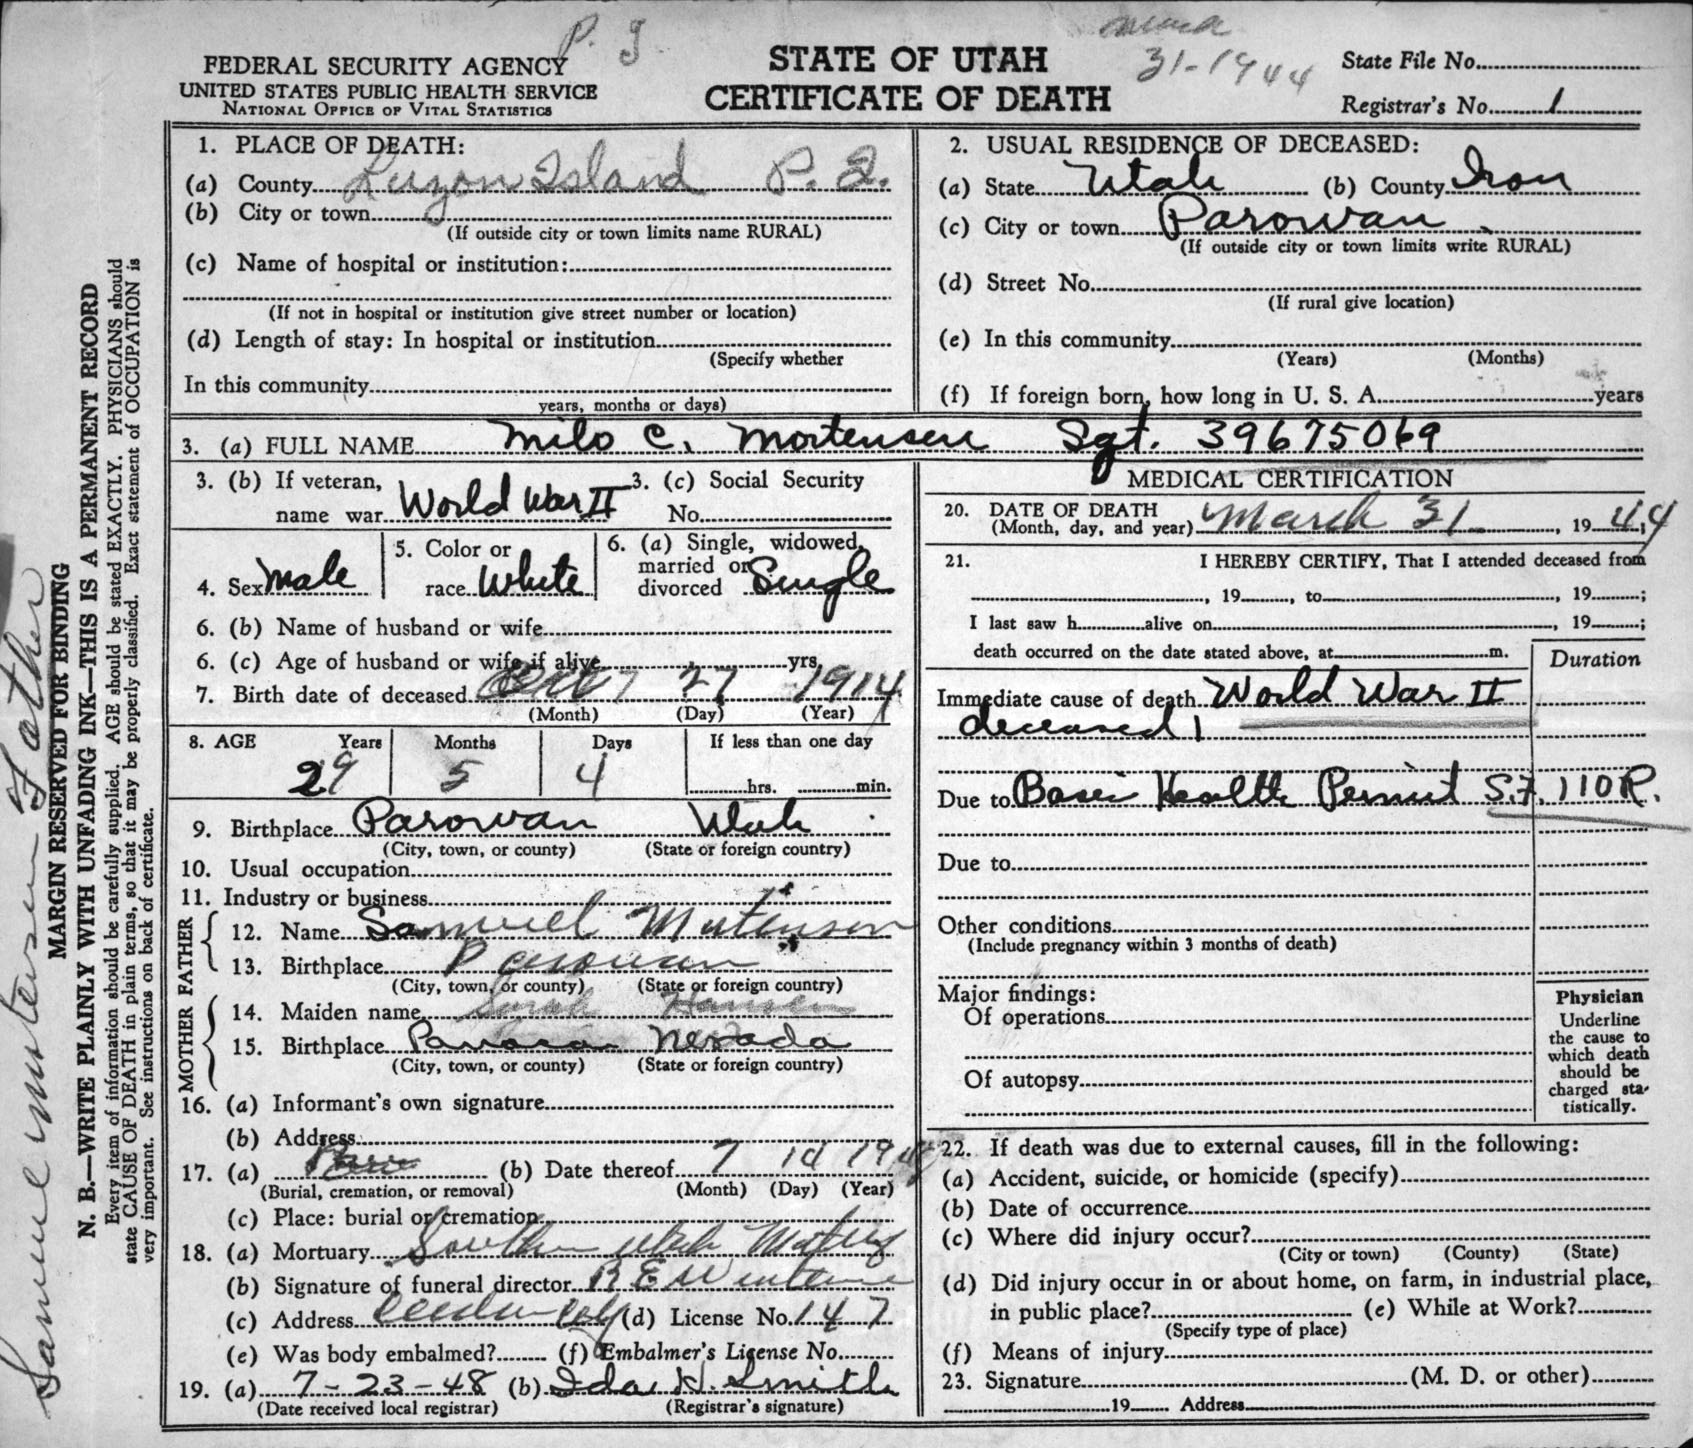 P. I
March
31-1944
FEDERAL SECURITY AGENCY
UNITED STATES PUBLIC HEALTH SERVICE
NATIONAL OFFICE OF VITAL STATISTICS
STATE OF UTAH
CERTIFICATE OF DEATH
State File No.
Registrar's No. 1
1. PLACE OF DEATH:
(a) County Luzon Island P. I.
(b) City or town
(If outside city or town limits name RURAL)
(c) Name of hospital or institution:
(If not in hospital or institution give street number or location)
(d) Length of stay: In hospital or institution
(Specify whether
In this community
years, months or days)
2. USUAL RESIDENCE OF DECEASED:
(a) State Utah (b) County Iron
(c) City or town Parowan
(If outside city or town limits write RURAL)
(d) Street No.
(If rural give location)
(e) In this community
(Years) (Months)
(f) If foreign born, how long in U. S. A. years
3. (a) FULL NAME Milo C. Mortensen Sgt. 39675069
3. (b) If veteran, 3. (c) Social Security
name war World War II No.
4. Sex Male
5. Color or
race White
6. (a) Single, widowed,
married or
divorced Single
6. (b) Name of husband or wife
6. (c) Age of husband or wife if alive yrs.
7. Birth date of deceased 27 1914
(Month) (Day) (Year)
8. AGE Years Months Days If less than one day
29 5 4 hrs. min.
9. Birthplace Parowan Utah
(City, town, or county) (State or foreign country)
10. Usual occupation
11. Industry or business
FATHER
12. Name Samuel Mortenson
13. Birthplace Parowan
(City, town, or county) (State or foreign country)
MOTHER
14. Maiden name Sarah Hansen
15. Birthplace Nevada
(City, town, or county) (State or foreign country)
16. (a) Informant's own signature
(b) Address
17. (a) (b) Date thereof 7
(Burial, cremation, or removal) (Month) (Day) (Year)
(c) Place: burial or cremation
18. (a) Mortuary Southern Utah
(b) Signature of funeral director
(c) Address Cedar City (d) License No. 147
(e) Was body embalmed? (f) Embalmer's License No.
19. (a) 7-23-48 (b) Ida H. Smith
(Date received local registrar) (Registrar's signature)
MEDICAL CERTIFICATION
20. DATE OF DEATH
(Month, day, and year) March 31, 1944
21. I HEREBY CERTIFY, That I attended deceased from
, 19 , to , 19 ;
I last saw h alive on , 19 ;
death occurred on the date stated above, at m.
Duration
Immediate cause of death World War II
deceased
Due to Health Permit S.F. 110R.
Due to
Other conditions
(Include pregnancy within 3 months of death)
Major findings:
Of operations
Of autopsy
Physician
Underline
the cause to
which death
should be
charged sta-
tistically.
22. If death was due to external causes, fill in the following:
(a) Accident, suicide, or homicide (specify)
(b) Date of occurrence
(c) Where did injury occur?
(City or town) (County) (State)
(d) Did injury occur in or about home, on farm, in industrial place,
in public place? (e) While at Work?
(Specify type of place)
(f) Means of injury
23. Signature (M. D. or other)
19 Address
Samuel Mortensen Father
MARGIN RESERVED FOR BINDING
N. B.—WRITE PLAINLY WITH UNFADING INK—THIS IS A PERMANENT RECORD
Every item of information should be carefully supplied. AGE should be stated EXACTLY. PHYSICIANS should
state CAUSE OF DEATH in plain terms, so that it may be properly classified. Exact statement of OCCUPATION is
very important. See instructions on back of certificate.